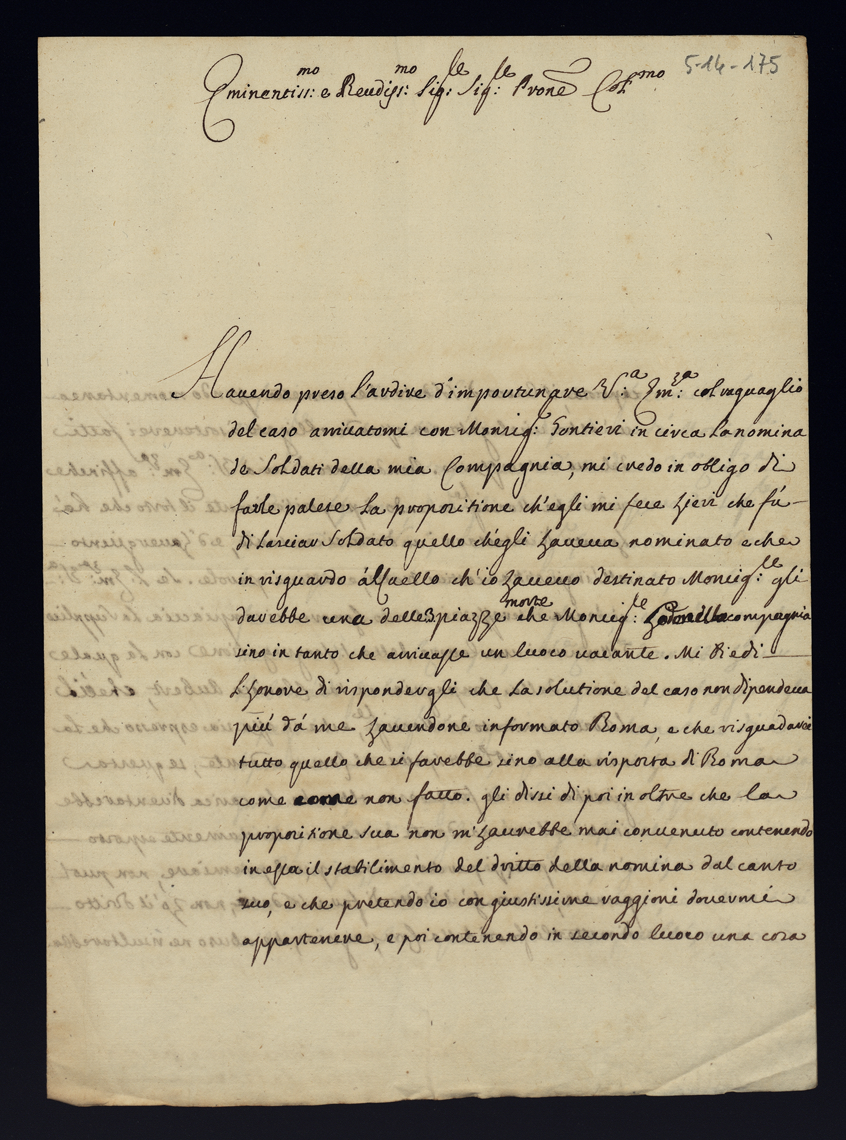 5-14-175
Eminentiss:mo e Reudiss:mo Sig:le Sig:le Prone Col:mo
Hauendo preso l'ardire d'importunare V:a Em:za col raguaglio
del caso arriuatomi con Monsig:r Gontieri in circa la nomina
de Soldati della mia Compagnia, mi credo in obligo di
farle palese la propositione ch'egli mi fece hieri che fú
di lasciar Soldato quello ch'egli haueua nominato e che
in risguardo á quello ch'io haueuo destinato Moncig:le gli
darebbe una delle 3 piazze morte che Monsig:le há nella compagnia
sino in tanto che arriuasse un luoco uacante. Mi diedi
l'honore di rispondergli che la solutione del caso non dipendeua
piú dá me hauendone informato Roma, e che risguadarei
tutto quello che si farebbe sino alla risposta di Roma
come non fatto. gli dissi di poi in oltre che la
propositione sua non m'haurebbe mai conuenuto contenendo
in essa il stabilimento del dritto della nomina dal canto
suo, e che pretendo io con giustissime raggioni douermi
appartenere, e poi contenendo in secondo luoco una cosa